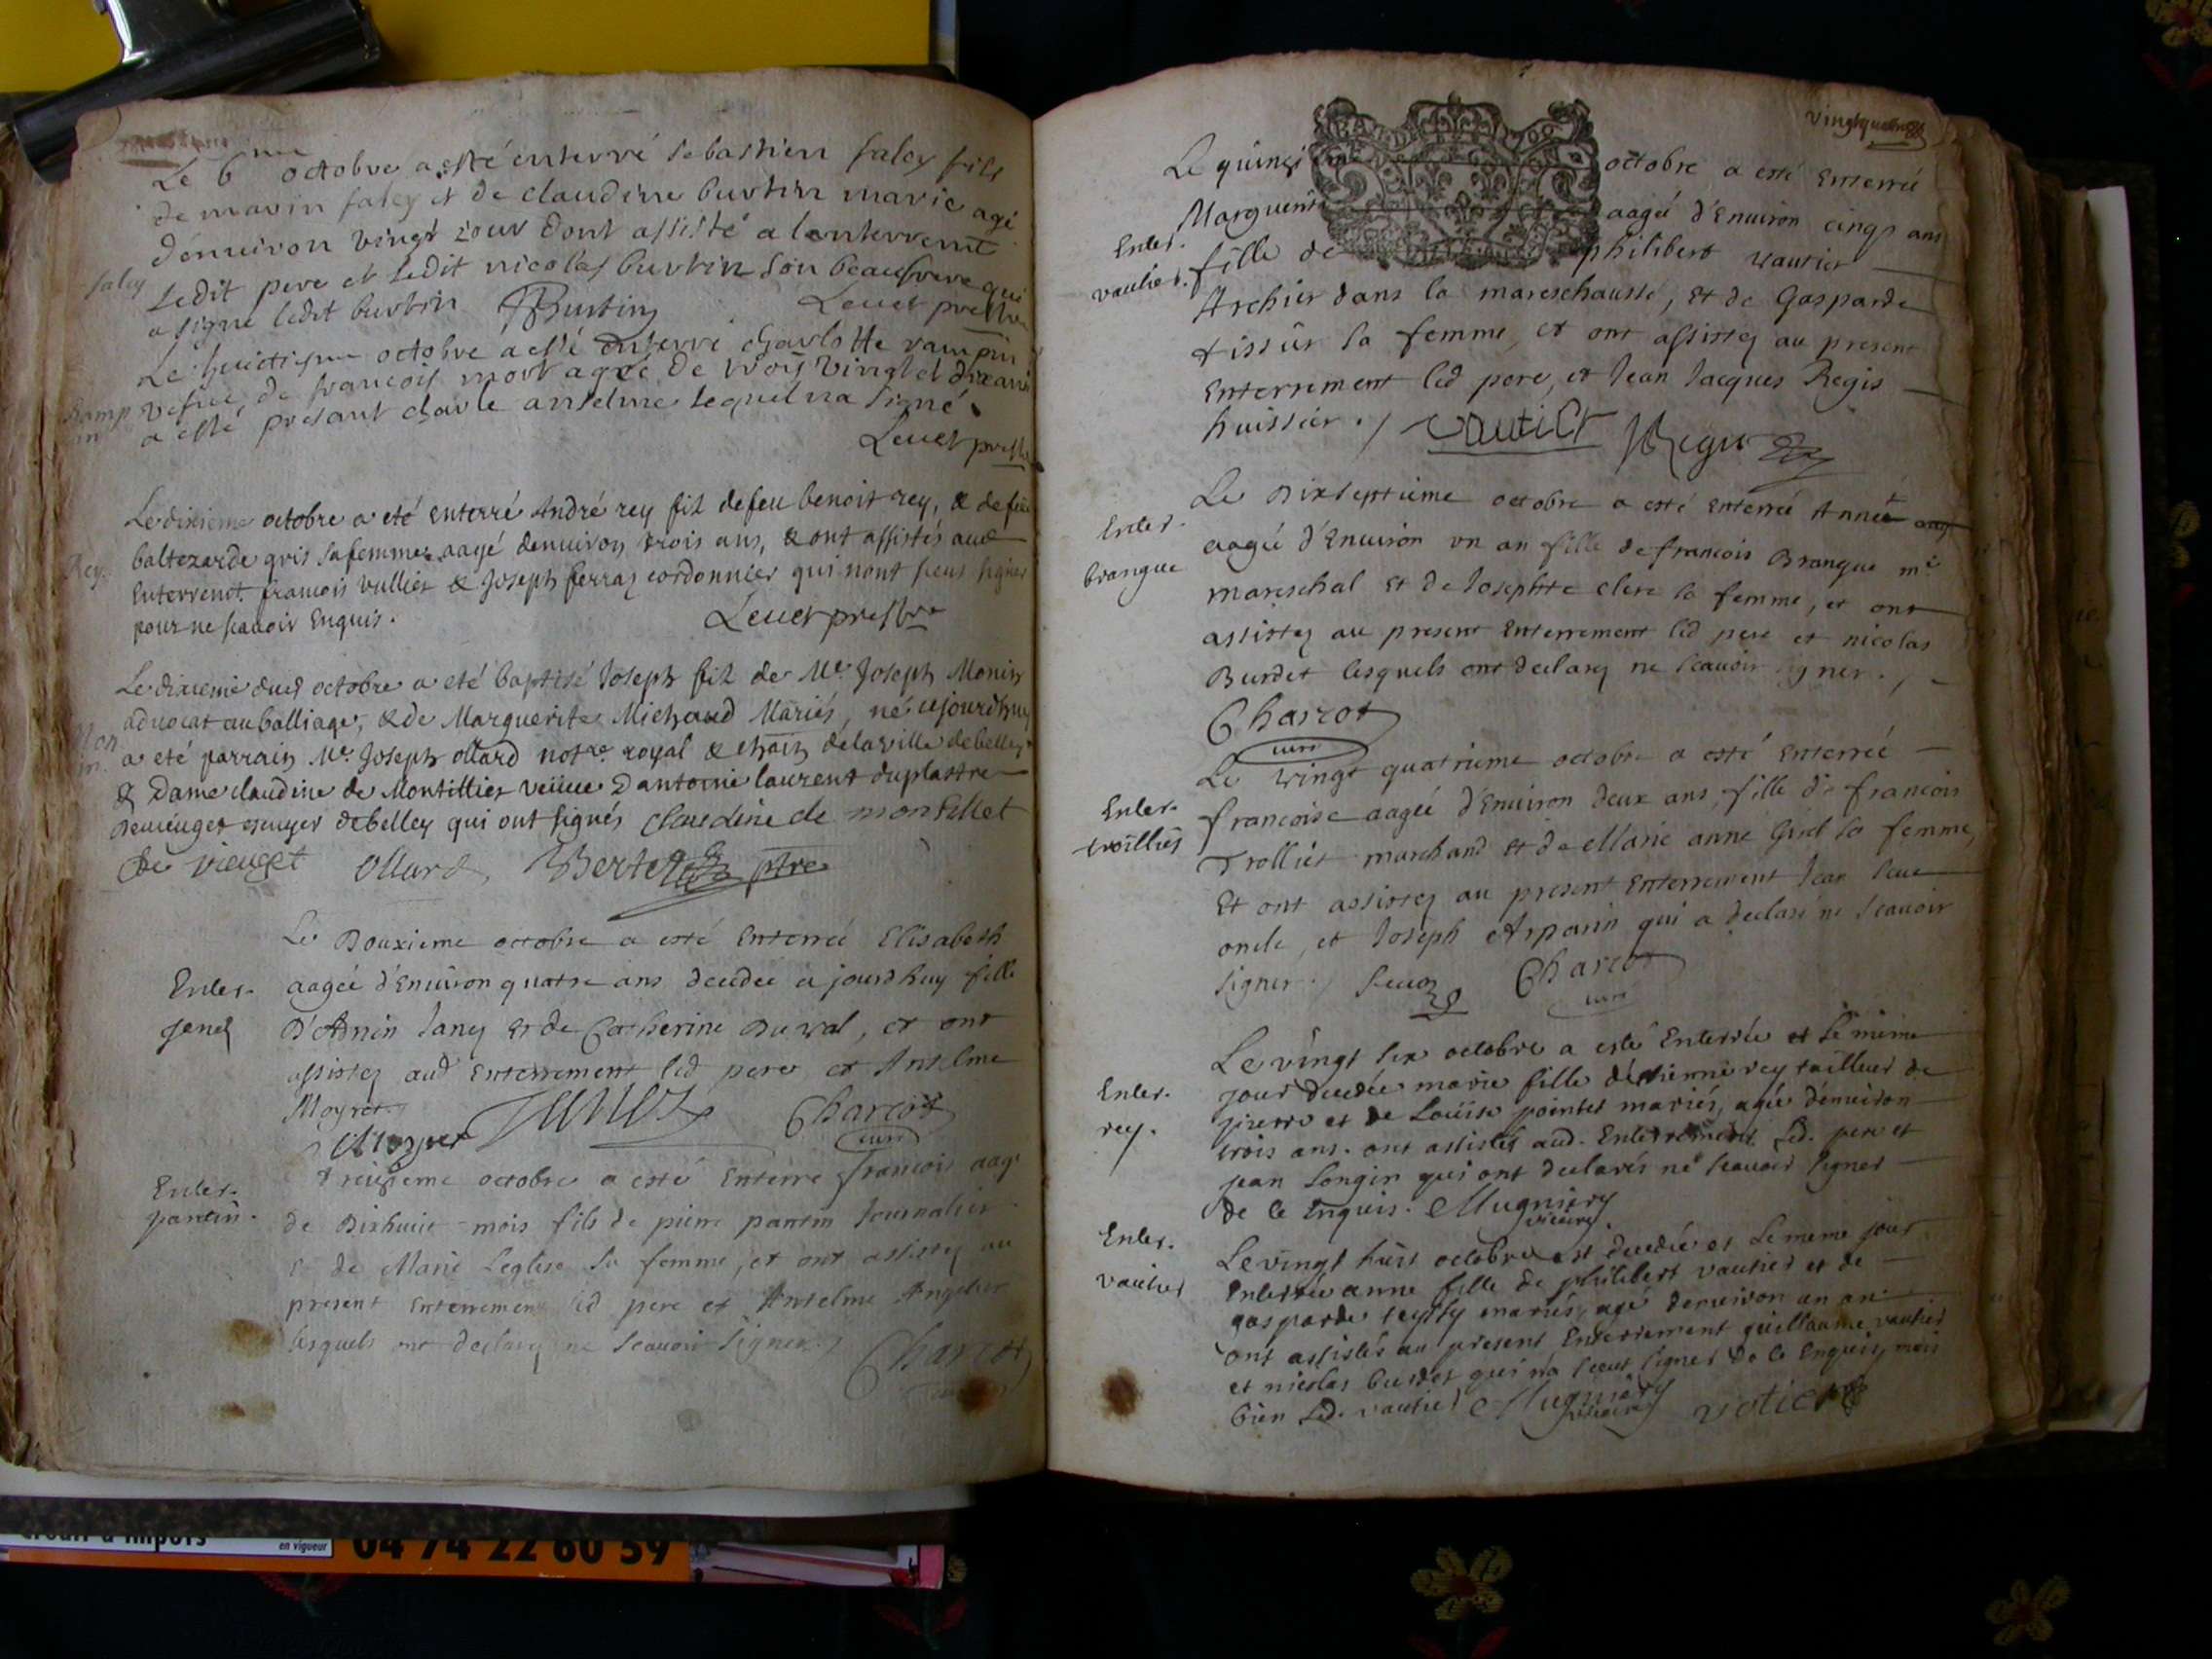 Le 6me octobre a esté enterré sebastien faley fils
de marin faley et de claudine burtin marie agé
d'enuiron vingt jour dont assisté a lenterremt
faley
ledit pere et ledit nicolas burtin son beaufrere qui
a signé ledit burtin Burtin Leuet prestre
Le huictiesme octobre a esté enterré charlotte rampin
vefue de francois mort agée de trois vingt et dix ans
Ramp
in
a esté presant charle anselme lequel na signé
Leuet prestre
Le dixieme octobre a eté enterré André rey fil de feu benoit rey, & de feüe
baltezarde gris sa femme aagé denuiron trois ans, & ont assistés aud
Rey.
Enterremt. francois vullier & Joseph ferraz cordonnier qui nont sceus signer
pour ne scauoir Enquis.
Leuet prestre
Le dixieme dud octobre a eté baptisé Joseph fil de Me. Joseph Monin
aduocat au balliage, & de Marguerite Michaud Mariés, né cejourdhuy
Mon
in.
a eté parrain Me. Joseph ollard notre. royal & de la ville de belley
& Dame claudine de Montillier veüue D'antoine laurent duplastre
escuyer debelley qui ont signés claudine de montillet
de vieuget Ollard, Bertet ptre
Le Douxieme octobre a esté Enterreé Elisabeth
Enter.
janez
aageé d'Enuiron quatre ans decedeé cejourdhuy fille
D'Annin Janey et de Catherine Duval, et ont
assistez aud Enterrement led pere et Anselme
Moyret
Moyret Janez Charcot
curé
Enter.
pantin.
treizieme octobre a esté Enterré francois aagé
de Dixhuit mois fils de pierre pantin Journalier
et de Marie Leglise sa femme, et ont assistez au
present Enterrement led pere et Antelme Angelier
lesquels ont declarez ne scauoir signer.
Charcot
curé
vingtquatre
Le quinzi octobre a esté Enterreé
Marguerite aageé d'Enuiron cinq ans
Enter.
vautier.
fille de philibert vautier
Archier dans la mareschaussé, et de Gasparde
tissûr sa femme, et ont assistez au present
Enterrement led pere, et Jean Jacques Regis
huissier. / Vautier JJRegis
Le Dixseptieme octobre a esté Enterreé Anne
Enter.
brangue
aageé d'Enuiron vn an fille de francois Brangue me.
mareschal et de Josephte clerc sa femme, et ont
assistez au present Enterrement led pere et nicolas
Burdet lesquels ont declarez ne scauoir signer. /
Charcot
curé
Le vingt quatrieme octobre a esté Enterreé
Enter.
trollier
francoise aageé d'Enuiron deux ans, fille de francois
Trollier marchand et de Marie anne Girel sa femme,
et ont assistez au present Enterrement Jean seue
oncle, et Joseph Arparin qui a declaré ne scauoir
signer. / seue Charcot
curé
Le vingt six octobre a esté Enterrée et le mème
Enter.
rey.
jour decedée marie fille détienne rey tailleur de
pierre et de Loüise pointet mariés, agée démuiron
trois ans. ont assistés aud. Enterrement. Led. pere et
jean Longin qui ont declarés ne scauoir signer
de ce Enquis. Mugniery
vicaire
Enter.
vautier
Le vingt huit octobre est decedée et le meme jour
Enterrée anne fille de philibert vautier et de
gasparde mariés, agé denuiron un an
ont assistés au present Enterrement guillaume vautier
et nicolas burdet qui na sceut signer de ce Enquis, mais
bien Led. vautier Mugniery votier
vicaire
en vigueur
04 74 22 60 59